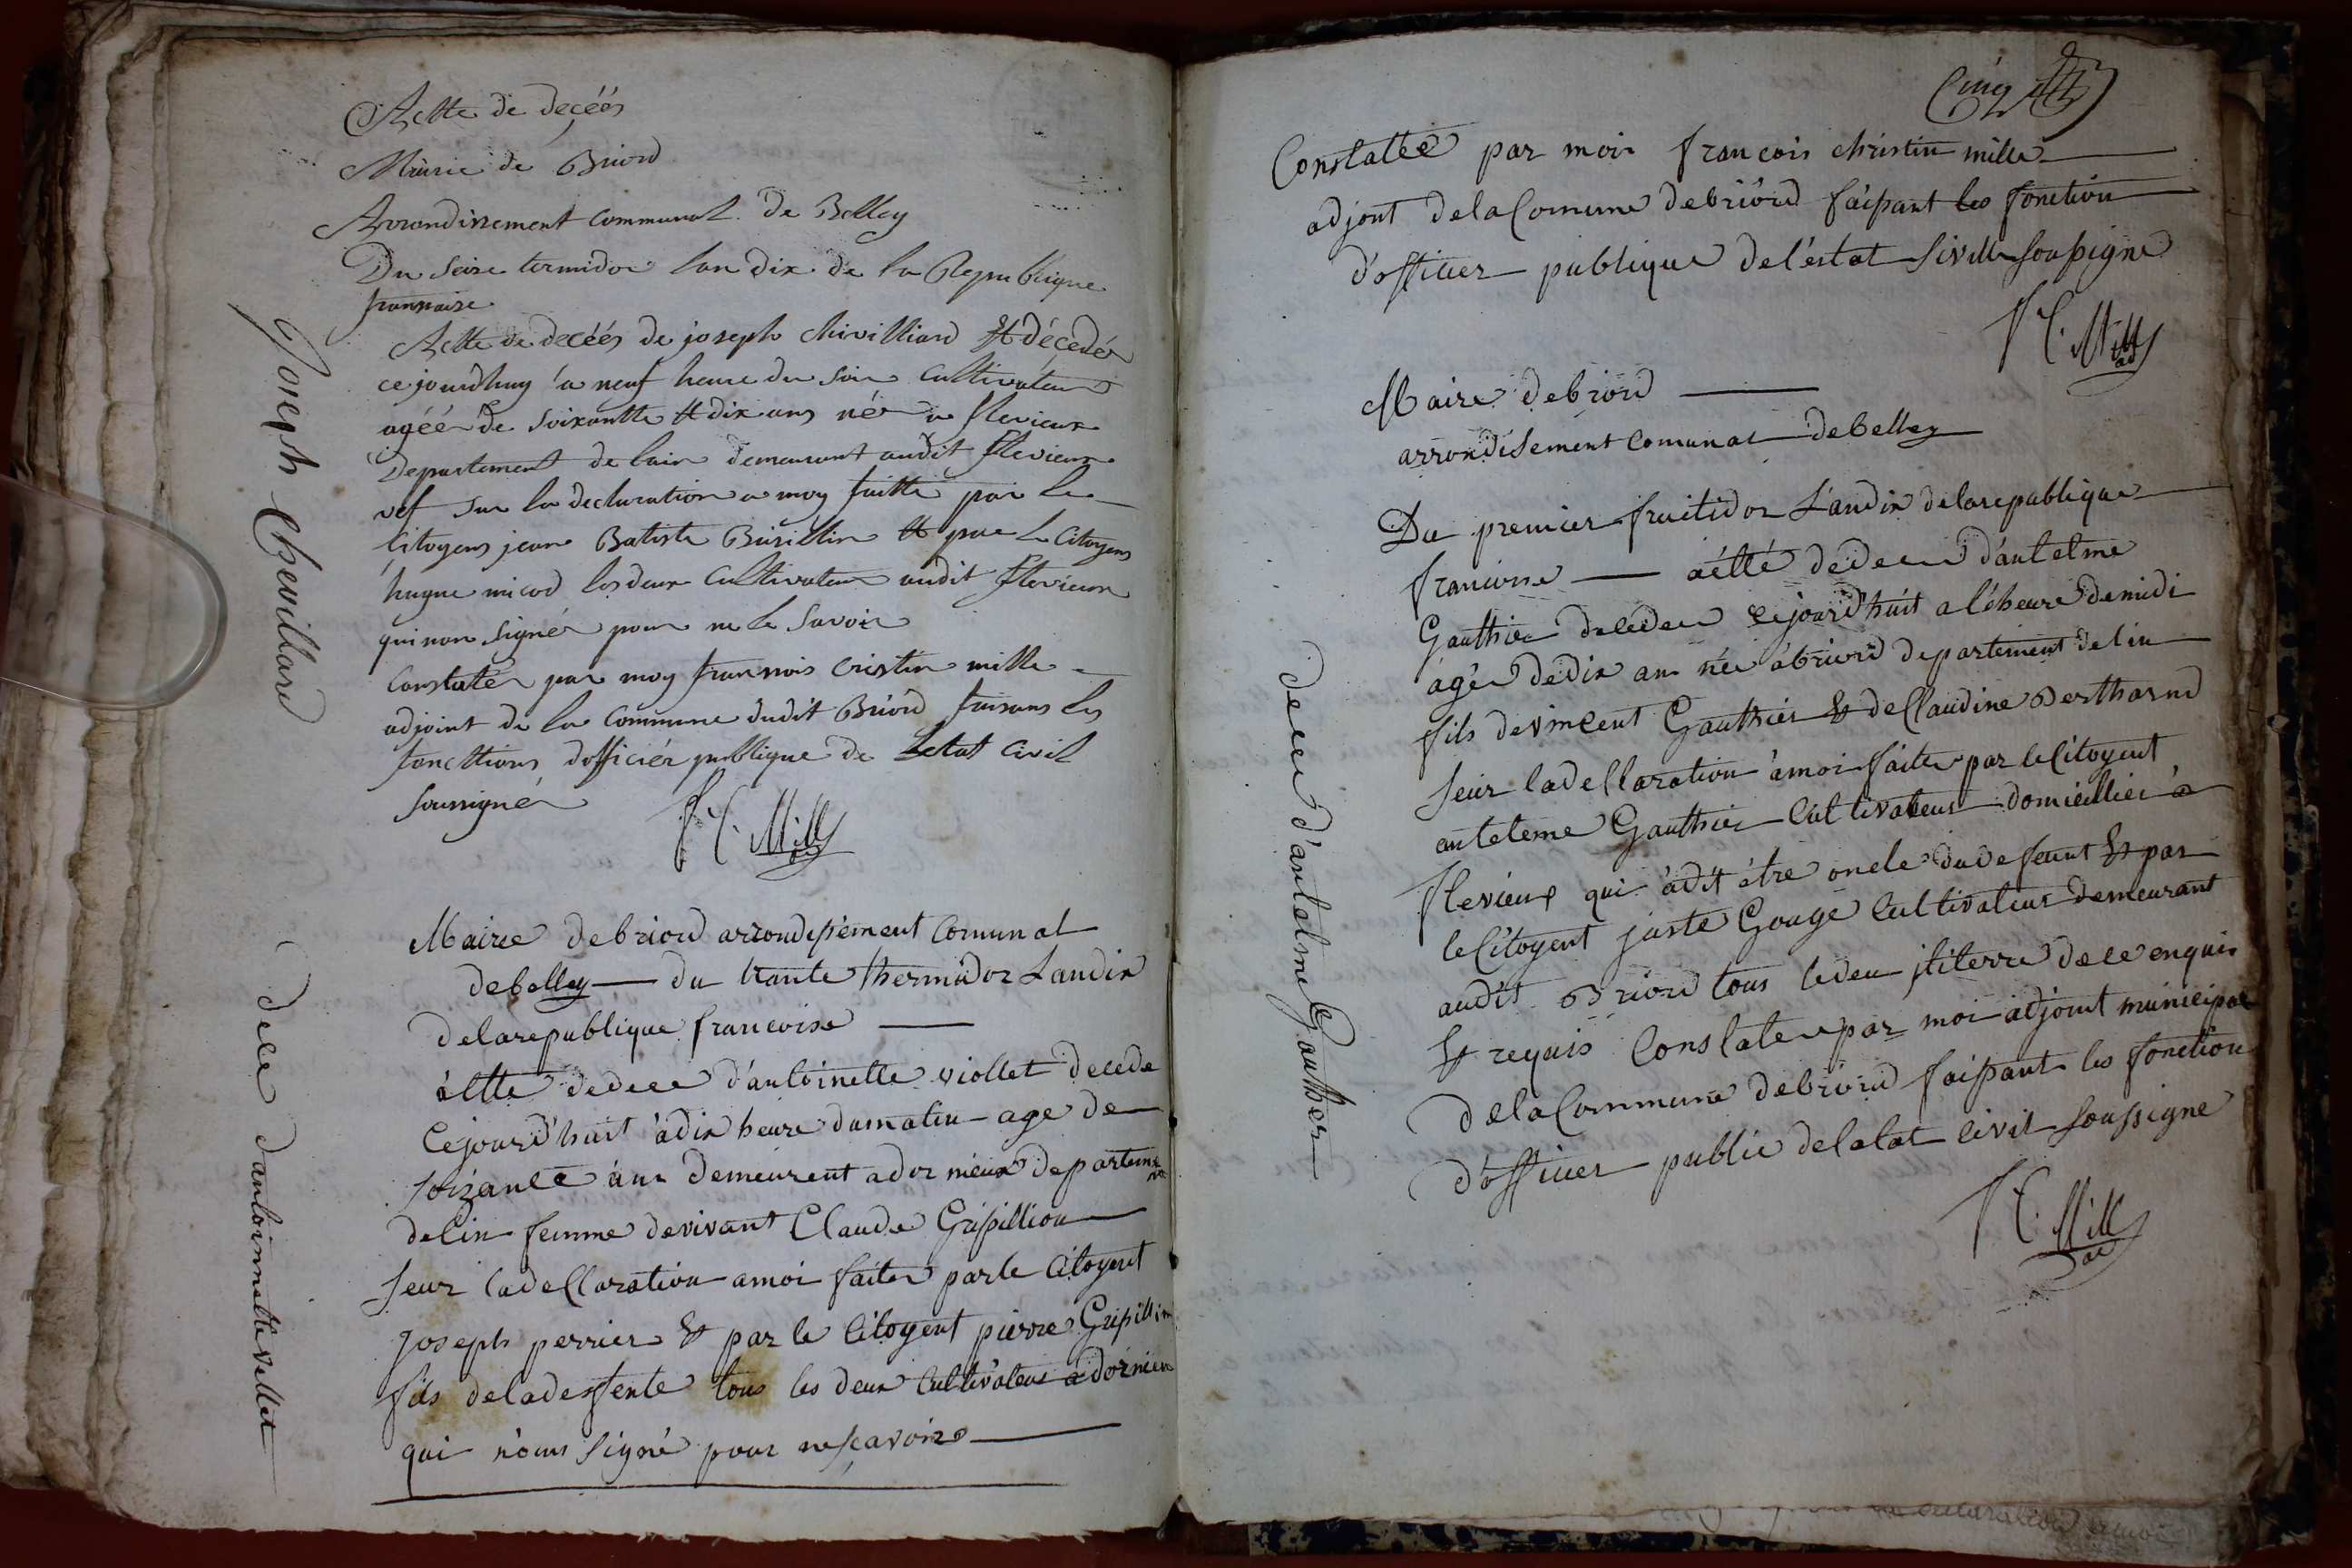 Actte de decéés
Mairie de Briord
Arrondissement Communal de Belley
Du seise termidor lan dix de la Republique
fransaise
Actte de decéés de joseph chivilliard Et décedéz
ce jourdhuy a neuf heure du soir Cultivateur
agéé de soixantte Et dix ans néz a flevieux
Departement de lain demeurant audit flevieux
vef sur la declaration a moy faitte par le
Citoyens jean Batiste Et par le Citoyens
hugue micod les deux Cultivateur audit flevieux
qui non signéz pour ne le savoir
Constatéz par moy fransois Cristin mille
adjoint de la Commune dudit Briord faisans les
foncttions dofficiér publique de Letat Civil
soussignéz
F C. Mille
Joseph Chevillard
Mairee debriord arrondisement Comunal
debelley du trante thermidor Landix
delarepublique francoise
áltte dedece d'antoinette viollet decede
Cejourd'huit àdix heure dumatin age de
soizante ans demeurent adornieux departem
delin femme devivant Claude Gripillion
seur ladecllaration amoi faitez parle Citoyent
joseph perrier Et par le Citoyent pierre Gripillion
fils deladesfente tous les deux Cultivateur a dornieu
qui n'ons signé pour nescavoir
dece dantoinnette vellet
Cinq
Constatéé par moi francois christin mille
adjont delaComune debriord faisant les fonction
d'officier publique del'estat siville soussigne
F C. Mille
Maire debriord
arrondisement Comunal debelley
Du premier fruitidor L'andix delarepublique
francoise aétté dedece d'antelme
Gauthier decedee cejourd'huit a l'éheure demidi
agée dedix an née àbriord departement delin
fils devincent Gauthier Et deClaudine Bertharnd
seur ladecllaration àmoi faite par leCitoyent
anteleme Gauthier Cultivateur domicillier à
flevieux qui àdit étre oncle dudefeunt Et par
leCitoyent juste Gouge Cultivateur demeurant
audit Briord tous ledeu de ce enquis
Et requis Constatee par moi adjoint municipal
delaCommune debriord faisant les fonction
d'officier public deletat civil soussigne
F C. Mille
dece d'antelme Gauthier